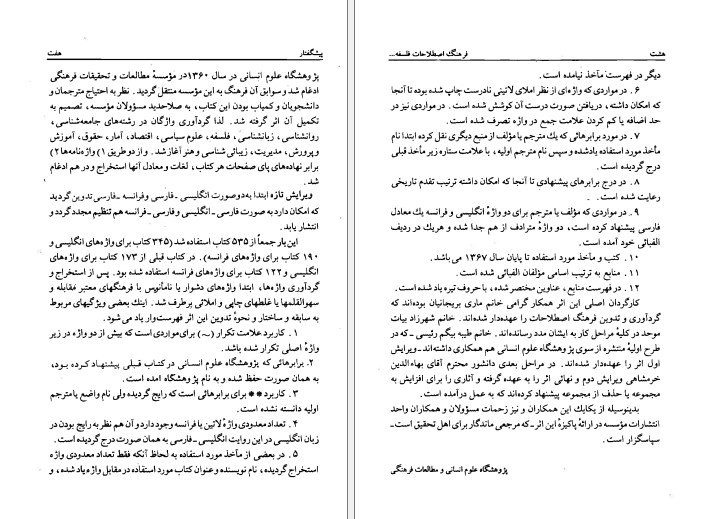 پیشگفتار هفت
پژوهشگاه علوم انسانی در سال ۱۳۶۰ در مؤسسهٔ مطالعات و تحقیقات فرهنگی
ادغام شد و سوابق آن فرهنگ به این مؤسسه منتقل گردید. نظر به احتیاج مترجمان و
دانشجویان و کمیاب بودن این کتاب، به صلاحدید مسؤولان مؤسسه، تصمیم به
تکمیل آن اثر گرفته شد. لذا گردآوری واژگان در رشته‌های جامعه‌شناسی،
روانشناسی، زبانشناسی، فلسفه، علوم سیاسی، اقتصاد، آمار، حقوق، آموزش
و پرورش، مدیریت، زیبائی شناسی و هنر آغاز شد. و از دو طریق ۱) واژه‌نامه‌ها ۲)
برابر نهاده‌های پای صفحات هر کتاب، لغات و معادل آنها استخراج و در هم ادغام
شد.
ویرایش تازه ابتدا به دو صورت انگلیسی ـ فارسی و فرانسه ـ فارسی تدوین گردید
که امکان دارد به صورت فارسی ـ انگلیسی و فارسی ـ فرانسه هم تنظیم مجدد گردد و
انتشار یابد.
این بار جمعاً از ۵۳۵ کتاب استفاده شد (۳۴۵ کتاب برای واژه‌های انگلیسی و
۱۹۰ کتاب برای واژه‌های فرانسه). در کتاب قبلی از ۱۷۳ کتاب برای واژه‌های
انگلیسی و ۱۲۲ کتاب برای واژه‌های فرانسه استفاده شده بود. پس از استخراج و
گردآوری واژه‌ها، ابتدا واژه‌های دشوار یا نامأنوس با فرهنگهای معتبر مقابله و
سهوالقلمها یا غلطهای چاپی و املائی برطرف شد. اینک بعضی ویژگیهای مربوط
به سابقه و ساختار و نحوهٔ تدوین این اثر فهرست‌وار یاد می‌شود.
۱. کاربرد علامت تکرار (~) برای مواردی است که بیش از دو واژه در زیر
واژهٔ اصلی تکرار شده باشد.
۲. برابرهائی که پژوهشگاه علوم انسانی در کتاب قبلی پیشنهاد کرده بود،
به همان صورت حفظ شده و به نام پژوهشگاه آمده است.
۳. کاربرد ** برای برابرهائی است که رایج گردیده ولی نام واضع یا مترجم
اولیه دانسته نشده است.
۴. تعداد معدودی واژهٔ لاتین یا فرانسه وجود دارد و آن هم نظر به رایج بودن در
زبان انگلیسی در این روایت انگلیسی ـ فارسی به همان صورت درج گردیده است.
۵. در بعضی از مآخذ مورد استفاده به لحاظ آنکه فقط تعداد معدودی واژه
استخراج گردیده، نام نویسنده و عنوان کتاب مورد استفاده در مقابل واژه یاد شده، و
هشت فرهنگ اصطلاحات فلسفه...
دیگر در فهرست مآخذ نیامده است.
۶. در مواردی که واژه‌ای از نظر املای لاتینی نادرست چاپ شده بوده تا آنجا
که امکان داشته، دریافتن صورت درست آن کوشش شده است. و در مواردی نیز در
حد اضافه یا کم کردن علامت جمع در واژه تصرف شده است.
۷. در مورد برابرهائی که یک مترجم یا مؤلف از منبع دیگری نقل کرده ابتدا نام
مأخذ مورد استفاده یاد شده و سپس نام مترجم اولیه، با علامت ستاره زیر مأخذ قبلی
درج گردیده است.
۸. در درج برابرهای پیشنهادی تا آنجا که امکان داشته ترتیب تقدم تاریخی
رعایت شده است.
۹. در مواردی که مؤلف یا مترجم برای دو واژهٔ انگلیسی و فرانسه یک معادل
فارسی پیشنهاد کرده است، دو واژهٔ مترادف از هم جدا شده و هریک در ردیف
الفبائی خود آمده است.
۱۰. کتب و مآخذ مورد استفاده تا پایان سال ۱۳۶۷ می باشد.
۱۱. منابع به ترتیب اسامی مؤلفان الفبائی شده است.
۱۲. در فهرست منابع، عناوین مختصر شده، با حروف تیره یاد شده است.
کارگردان اصلی این اثر همکار گرامی خانم ماری بریجانیان بوده‌اند که
گردآوری و تدوین فرهنگ اصطلاحات را عهده‌دار بوده‌اند. خانم شهرزاد بیات
موحد در کلیهٔ مراحل کار به ایشان مدد رسانده‌اند. خانم طیبه بیگم رئیسی ـ که در
طرح اولیهٔ منتشره از سوی پژوهشگاه علوم انسانی هم همکاری داشته‌اند ـ ویرایش
اول اثر را عهده‌دار شده‌اند. در مراحل بعدی دانشور محترم آقای بهاءالدین
خرمشاهی ویرایش دوم و نهائی اثر را به عهده گرفته و آثاری را برای افزایش به
مجموعه یا حذف از مجموعه پیشنهاد کرده‌اند که به عمل درآمده است.
بدینوسیله از یکایک این همکاران و نیز زحمات مسؤولان و همکاران واحد
انتشارات مؤسسه در ارائهٔ پاکیزهٔ این اثر ـ که مرجعی ماندگار برای اهل تحقیق است ـ
سپاسگزار است.
پژوهشگاه علوم انسانی و مطالعات فرهنگی